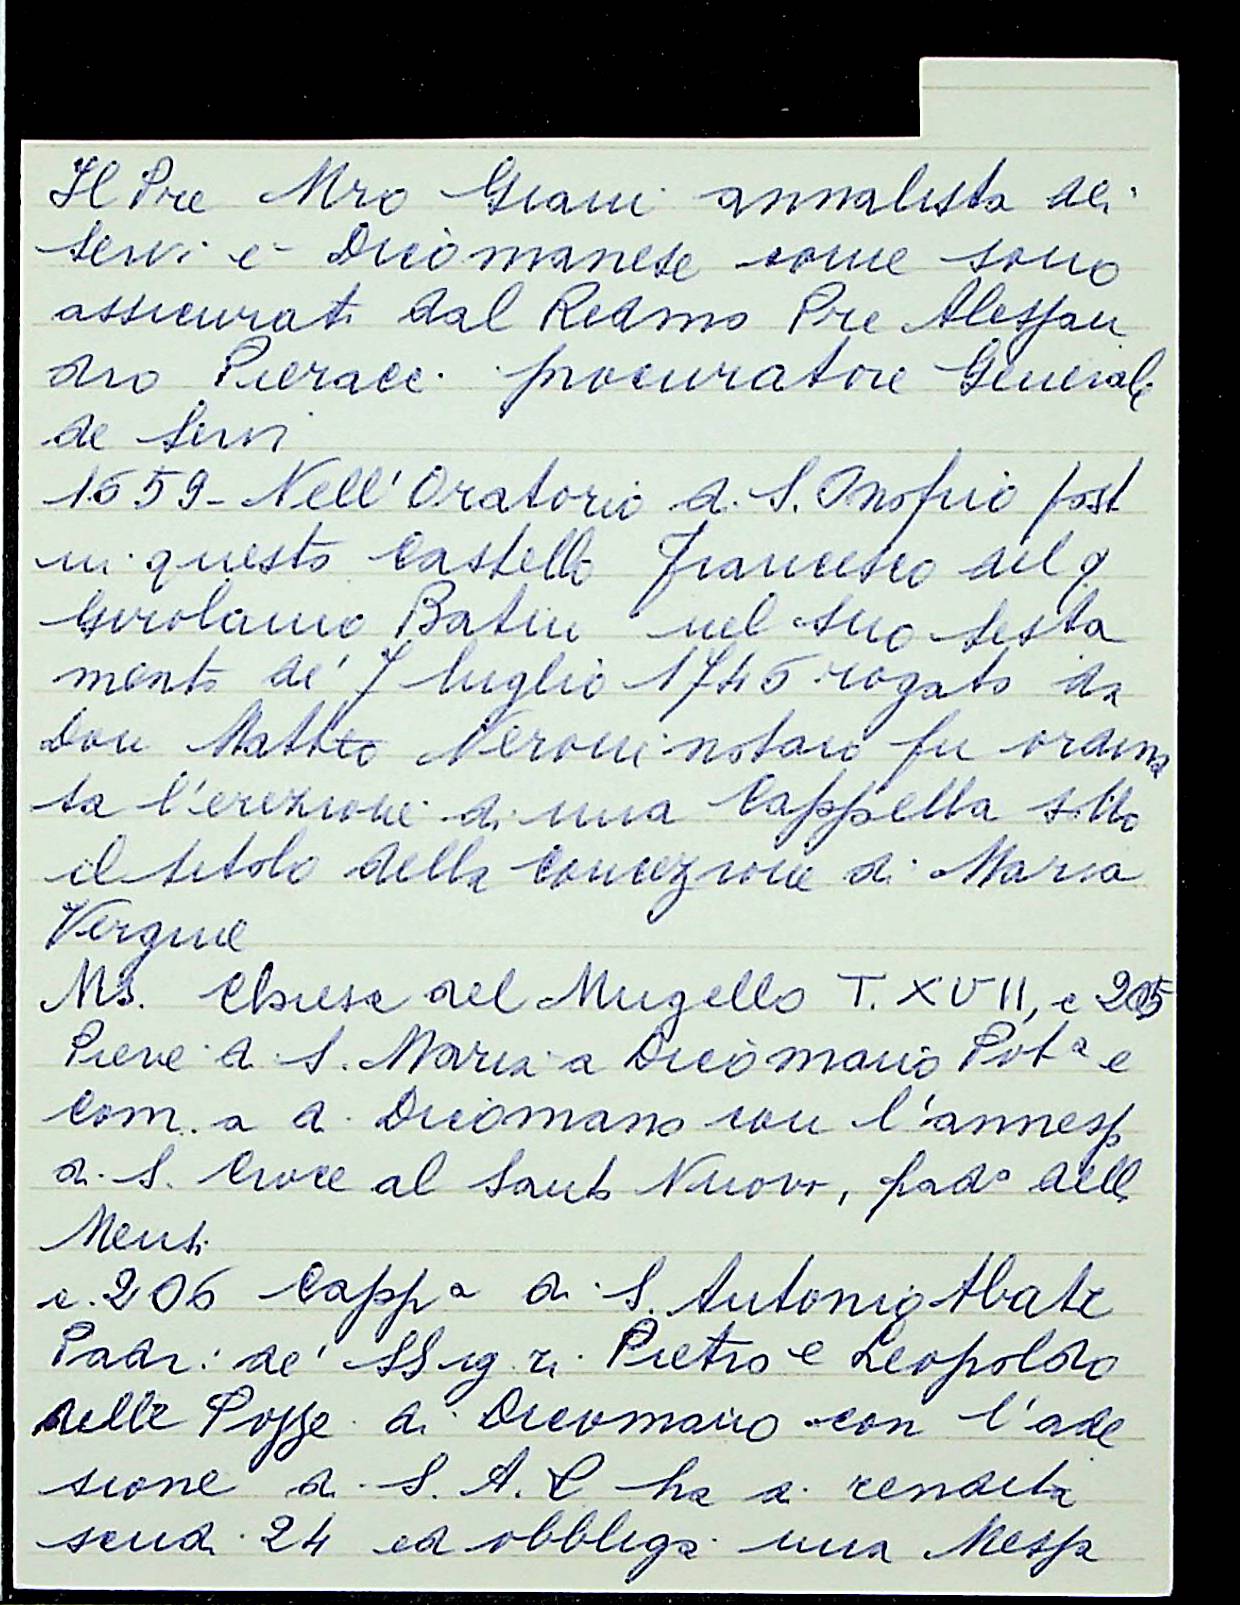 Il Pre Mro Giani annalista dei
Servi è Dicomanese come sono
assicurati dal Redmo Pre Alessan
dro Pieracci procuratore Generale
de Servi
1659 - Nell'Oratorio di S. Onofrio post
in questo Castello Francesco del q
Girolamo Batini nel suo testa
mento de' 7 luglio 1745 rogato da
Don Matteo Neroni notaio fu ordina
ta l'erezione di una Cappella sotto
il titolo della Concezione di Maria
Vergine
Ms. Chiese del Mugello T. XVII, c 205
Pieve di S. Maria a Dicomano Pot.a e
Com.a di Dicomano con l'annessa
di S. Croce al Santo Nuovo, pad.o delle
Menti
c. 206 Capp.a di S. Antonio Abate
Padri: de' SSig.ri Pietro e Leopoldo
delle Pozze di Dicomano con l'ade
sione di S. A. C ha di rendita
scudi 24 ed obbliga una Messa